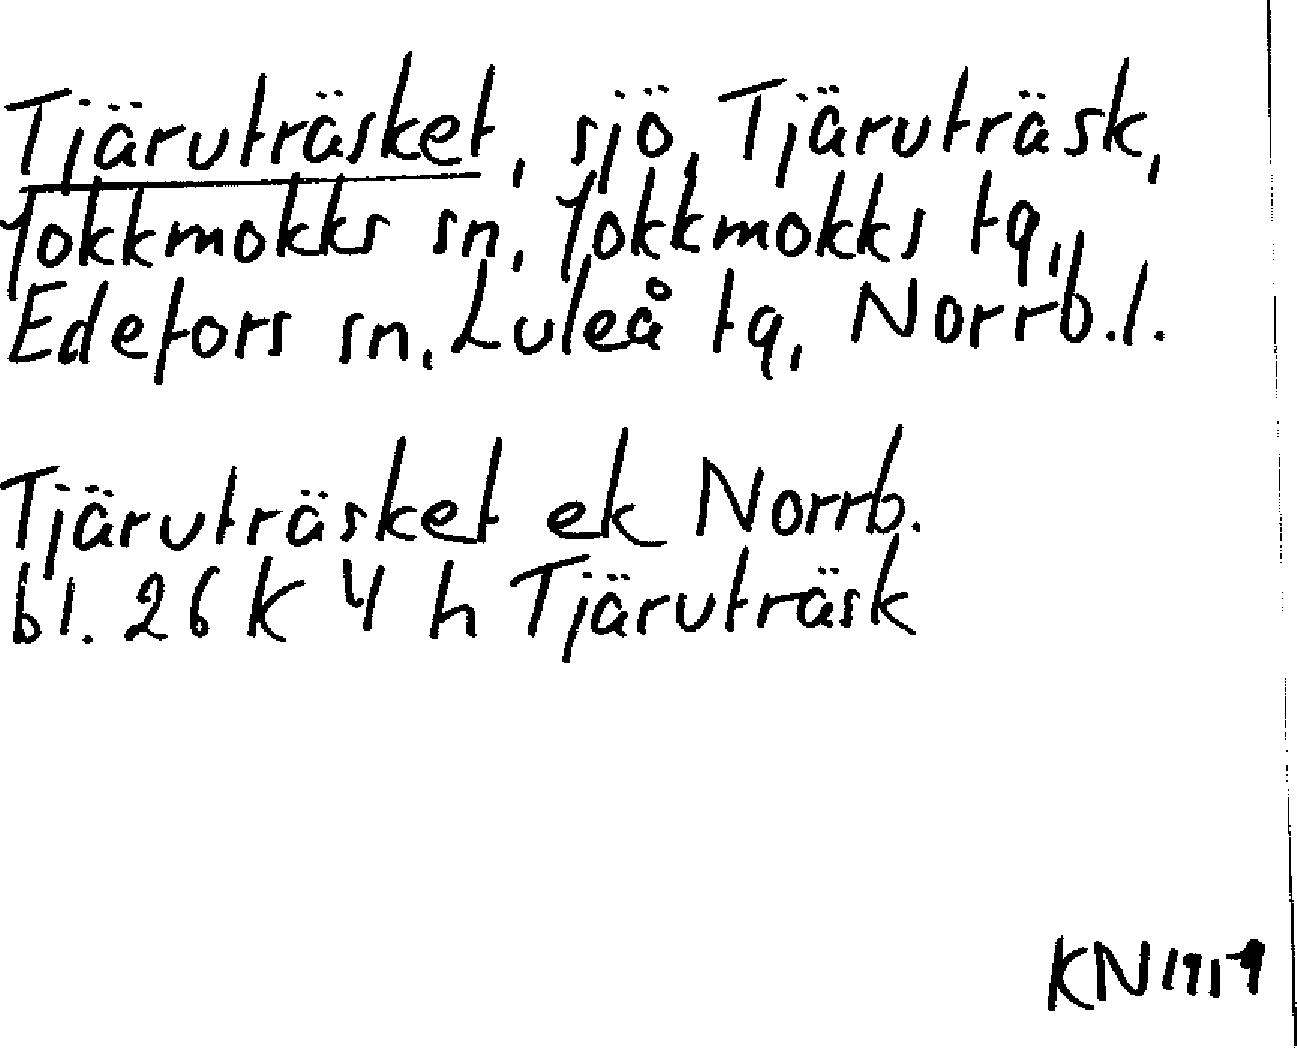 Tjäruträsket, sjö, Tjäruträsk,
Jokkmokks sn, Jokkmokks tg,
Edefors sn, Luleå tg, Norrb. l.
Tjäruträsket ek Norrb.
bl. 26 K 4 h Tjäruträsk
KN 1919